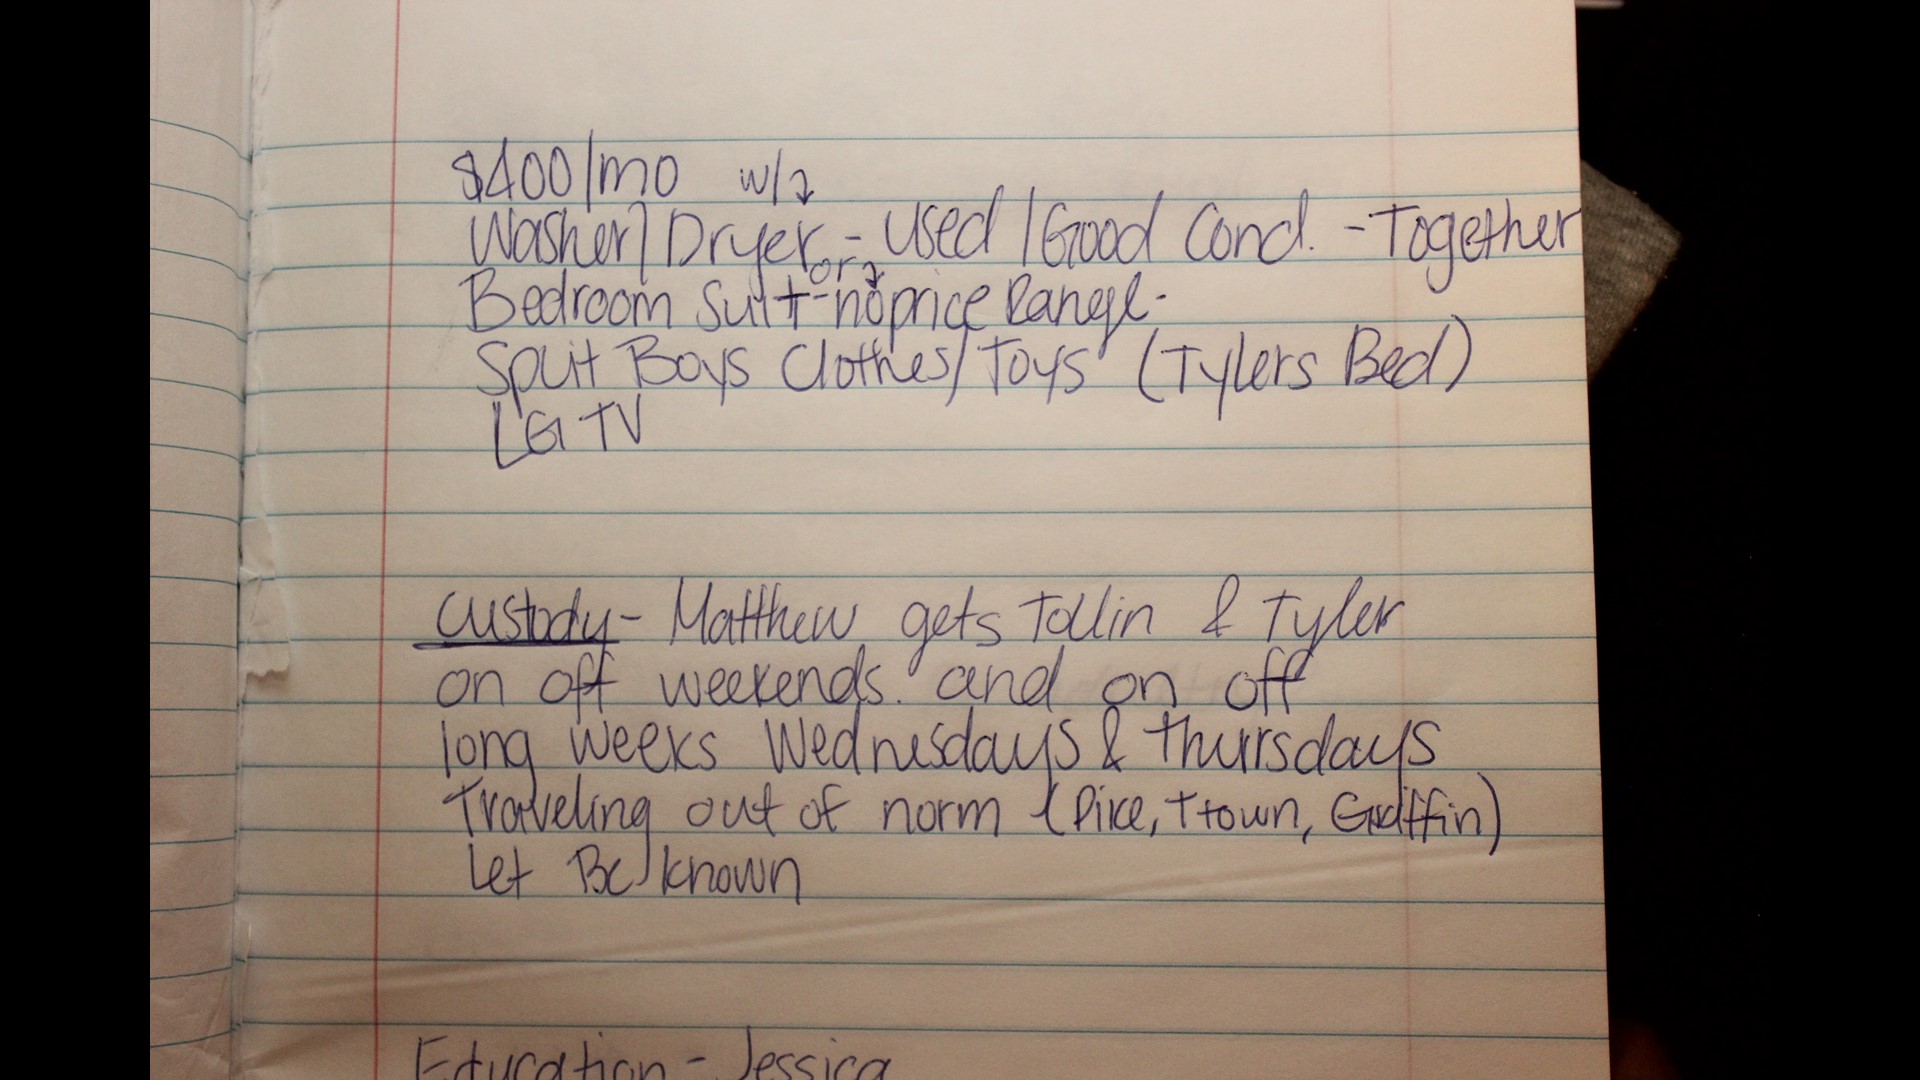 $400/mo w/
Washer/Dryer - used/Good Cond. - Together
or
Bedroom suit - no price Range -
Split Boys Clothes/Toys (Tylers Bed)
LG TV
Custody - Matthew gets Tollin & Tyler
on off weekends. and on off
long weeks Wednesdays & Thursdays
Traveling out of norm (Pike, Ttown, Griffin)
Let Be known
Education - Jessica